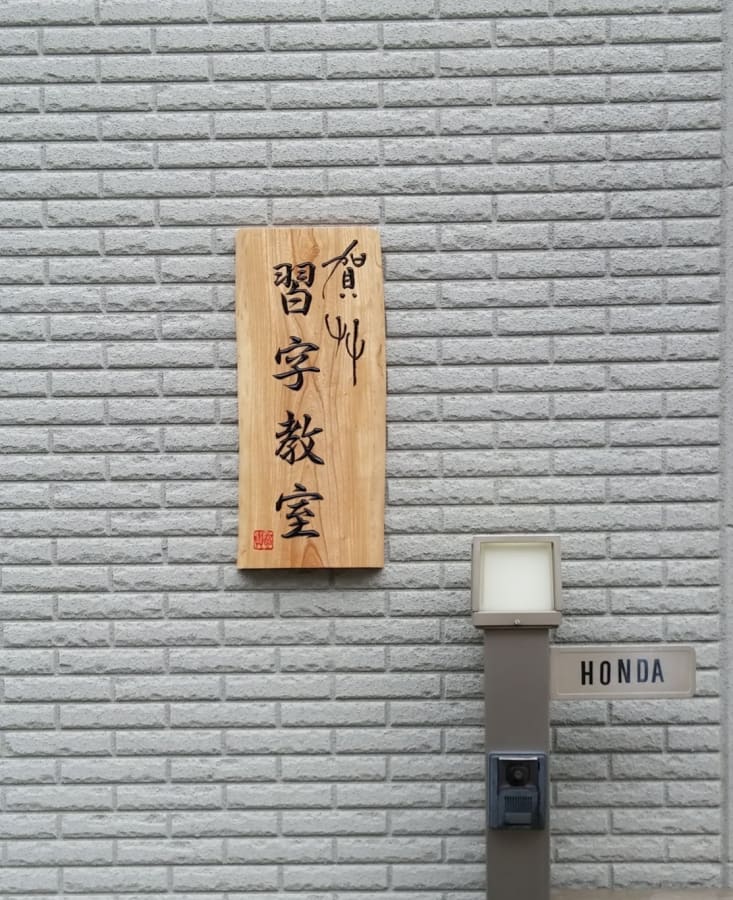 賀艸
習字教室
HONDA